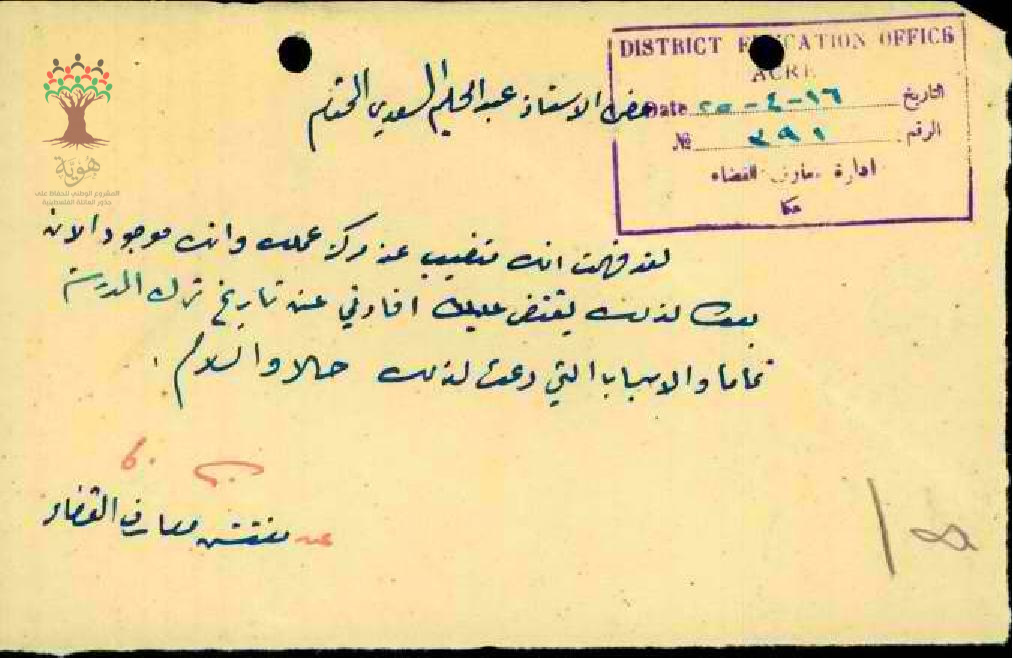 DISTRICT EDUCATION OFFICE
ACRE
التاريخ Date ٢٥-٤-١٦
الرقم № ٣٩١
ادارة معارف القضاء
عكا
هوية
المشروع الوطني للحفاظ على
جذور العائلة الفلسطينية
حضرة الاستاذ عبد الحليم السعدي المحترم
لقد فهمت انك متغيب عن مركز عملك وانك موجود الان
لذلك يقتضي عليك افادتي عن تاريخ ترك المدرسة
تماما والاسباب التي دعت لذلك حالا والسلام.
عن مفتش معارف القضاء